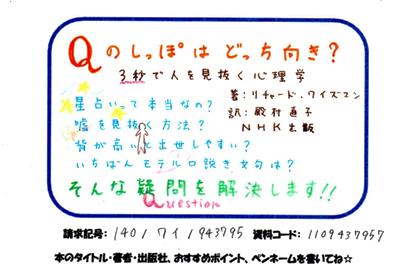 Qのしっぽはどっち向き?
3秒で人を見抜く心理学
著:リチャード・ワイズマン
訳:殿村直子
NHK出版
星占いって本当なの?
嘘を見抜く方法?
背が高いと出世しやすい?
いちばんモテル口説き文句は?
そんな疑問を解決します!!
Question
請求記号: 140/ワイ/943795 資料コード: 1109437957
本のタイトル・著者・出版社、おすすめポイント、ペンネームを書いてね☆